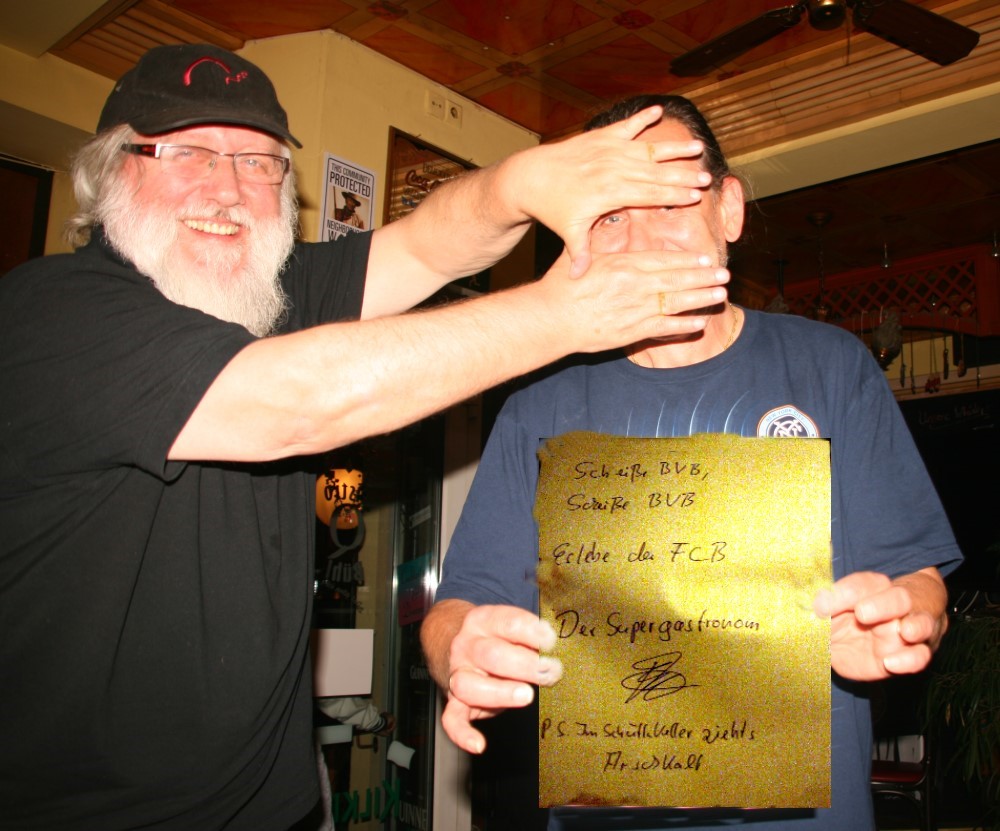 THIS COMMUNITY
PROTECTED
NEIGHBORH
Scheiße BVB,
Scheiße BVB
Es lebe der FCB
Der Supergastronom
P.S. Im Schüttkeller ziehts
Arschkalt
KILK